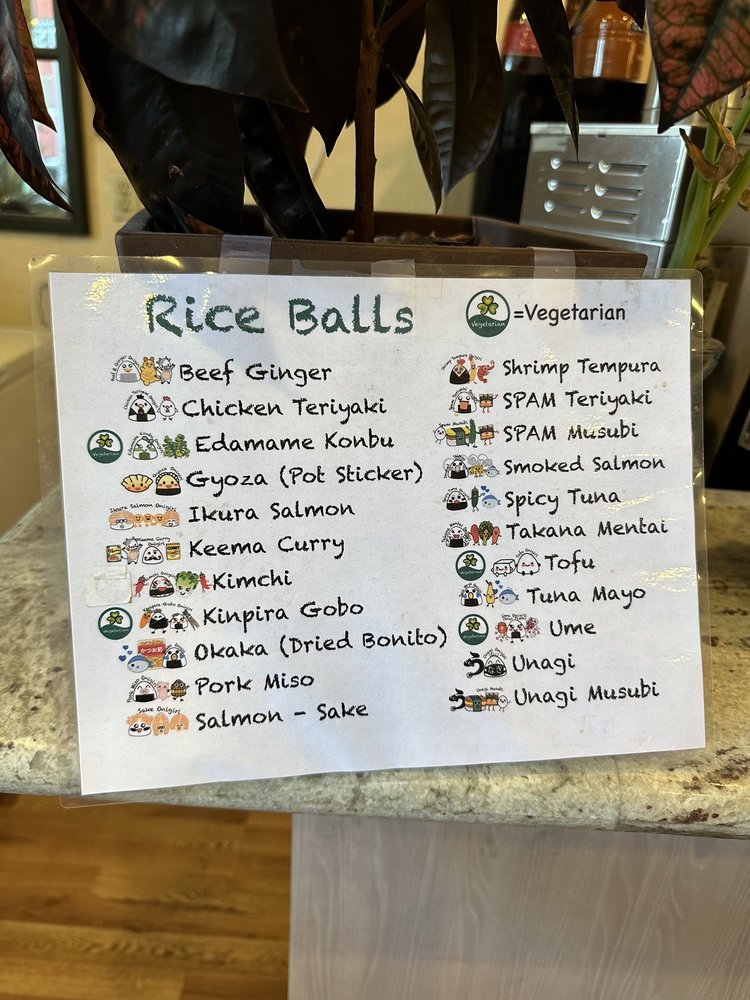 Rice Balls
Vegetarian
=Vegetarian
Beef Ginger
Chicken Teriyaki
Vegetarian
Edamame Konbu
Gyoza (Pot Sticker)
Ikura Salmon Onigiri
Ikura Salmon
Keema Curry
Keema Curry
Kimchi
Vegetarian
Kinpira Gobo Onigiri
Kinpira Gobo
かつお節
Okaka (Dried Bonito)
Pork Miso
Sake Onigiri
Salmon - Sake
Shrimp Tempura
SPAM Teriyaki
SPAM Musubi
Smoked Salmon
Spicy Tuna
Takana Mentai
Vegetarian
Tofu
Tuna Mayo
Vegetarian
Ume
う
Unagi
う
Unagi Musubi